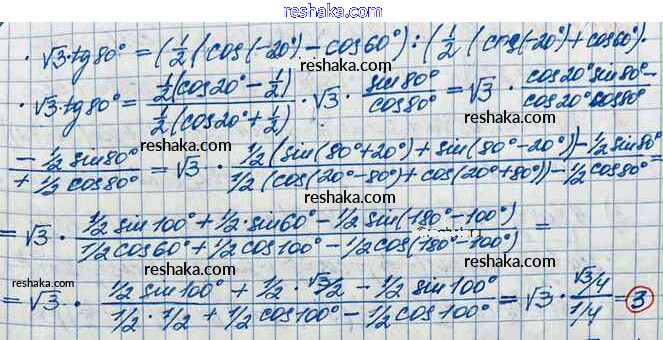 www.reshaka.com
· √3·tg80° = (½(cos(-20°) - cos60°) : (½(cos(-20°) + cos60°)·
reshaka.com
· √3·tg80° = ½(cos20° - ½) / ½(cos20° + ½) · √3 · sin80° / cos80° = √3 · cos20° sin80° - / cos20° cos80°
reshaka.com reshaka.com
- ½ sin80° / + ½ cos80° = √3 · ½(sin(80°+20°) + sin(80°-20°)) - ½ sin80° / ½(cos(20°-80°) + cos(20°+80°)) - ½ cos80° =
reshaka.com reshaka.com
= √3 · ½ sin100° + ½·sin60° - ½ sin(180°-100°) / ½ cos60° + ½ cos100° - ½ cos(180°-100°) =
reshaka.com reshaka.com
= √3 · ½ sin100° + ½·√3/2 - ½ sin100° / ½·½ + ½ cos100° - ½ cos100° = √3 · √3/4 / 1/4 = 3
reshaka.com reshaka.com reshaka.com